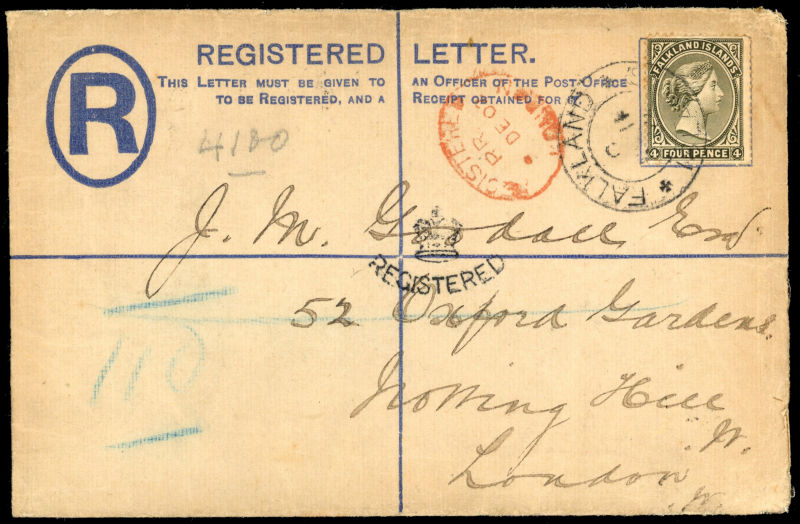 R
REGISTERED LETTER.
THIS LETTER MUST BE GIVEN TO AN OFFICER OF THE POST OFFICE
TO BE REGISTERED, AND A RECEIPT OBTAINED FOR
FALKLAND ISLANDS
4 FOUR PENCE 4
FALKLAND
REGISTERED
DE 07
4180
J. M. Goodall, Esq.
REGISTERED
52 Oxford Gardens.
Notting Hill
W.
London
W.
110